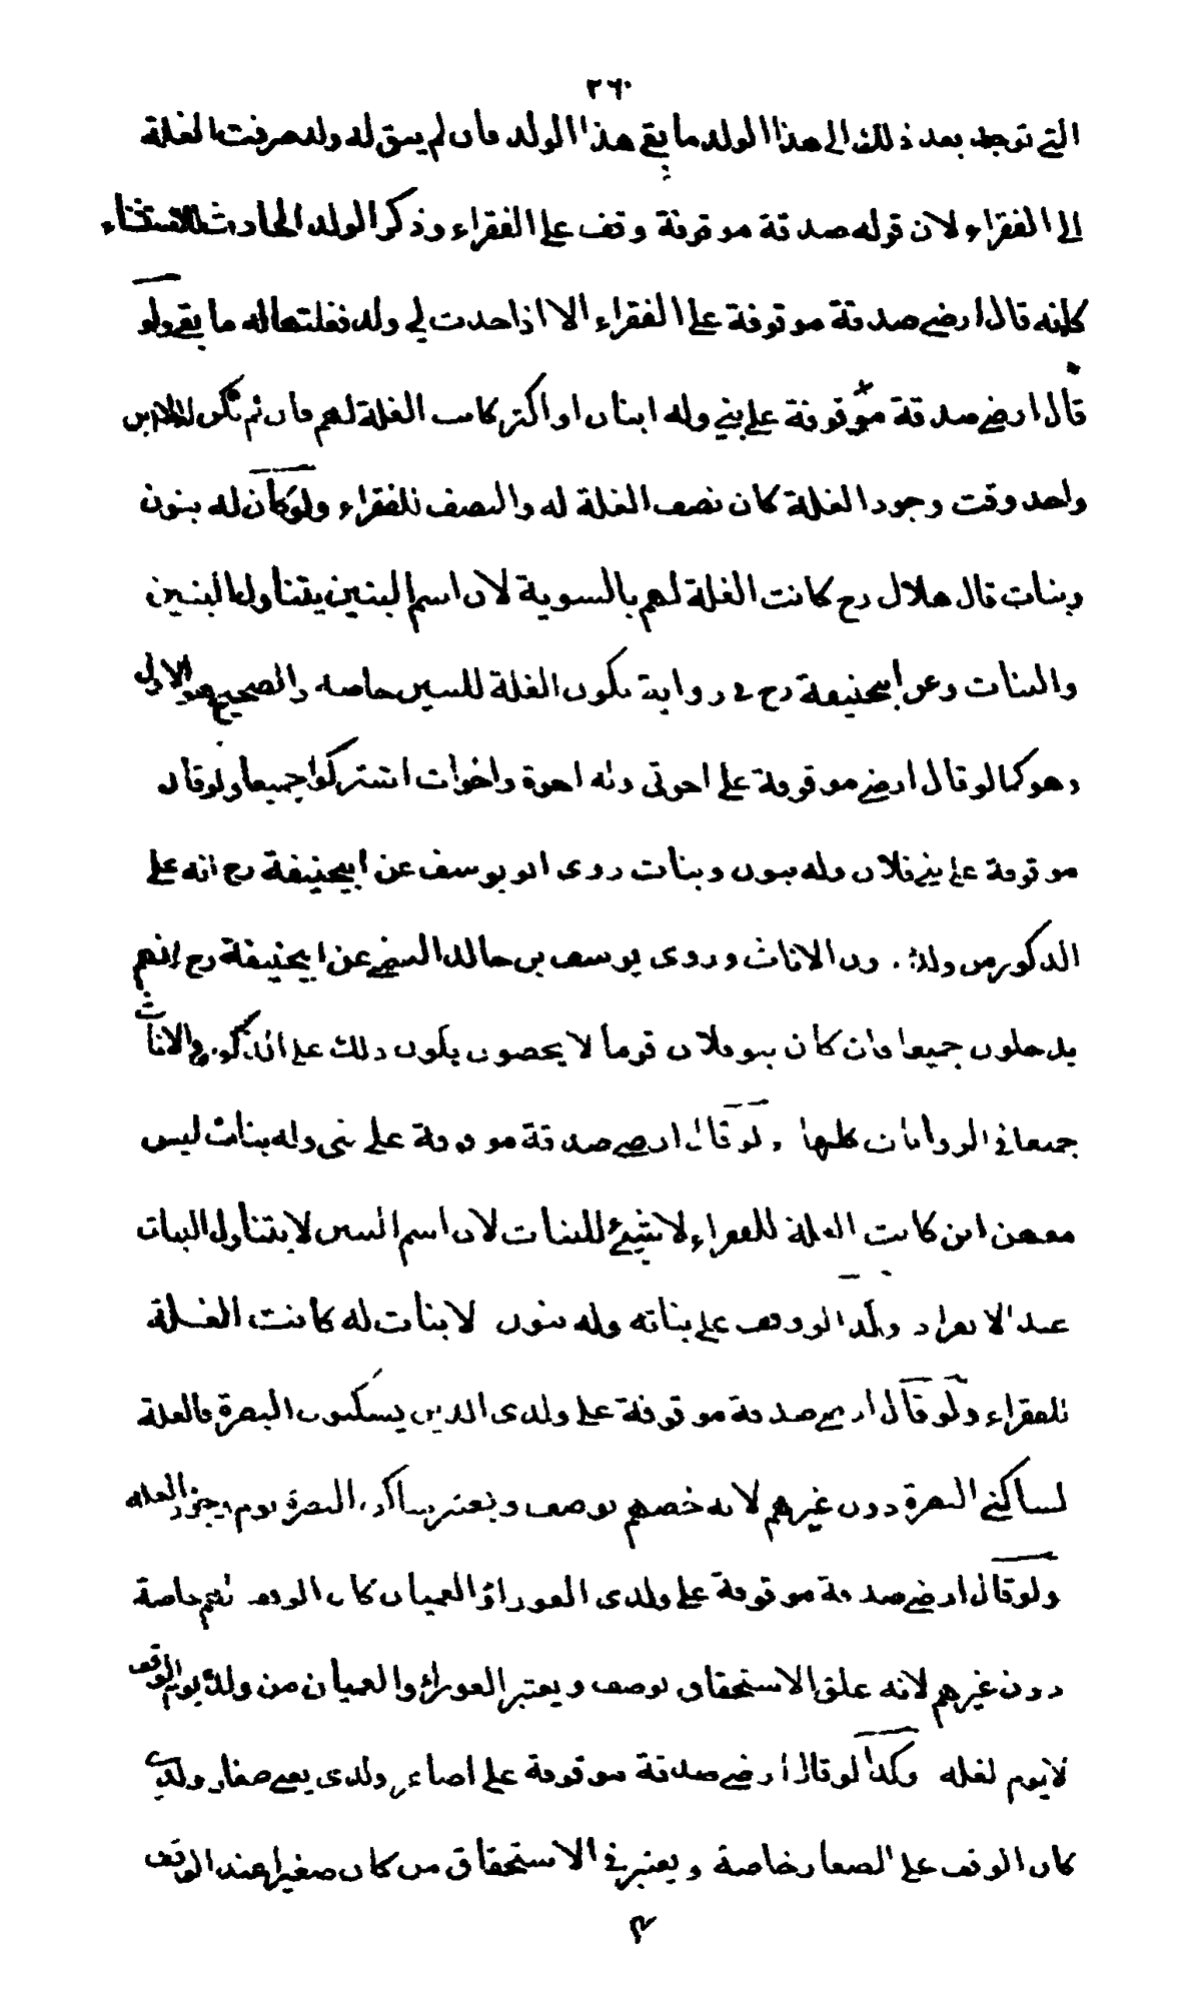 ٢٦٠
التي توجد بعد ذلك الى هذا الولد ما بقي هذا الولد فان لم يبق له ولد صرفت الغلة
الى الفقراء لان قوله صدقة موقوفة وقف على الفقراء وذكر الولد الحادث للاستثناء
كانه قال ارضي صدقة موقوفة على الفقراء الا اذا حدث لي ولد فغلتها له ما بقي ولو
قال ارضي صدقة موقوفة على بني وله ابنان او اكثر كانت الغلة لهم فان لم تكن له الا ابن
واحد وقت وجود الغلة كان نصف الغلة له والنصف للفقراء ولو كان له بنون
وبنات قال هلال رح كانت الغلة لهم بالسوية لان اسم البنين يتناول البنين
والبنات وعن ابيحنيفة رح في رواية تكون الغلة للبنين خاصة والصحيح هو الاول
وهو كما لو قال ارضي موقوفة على اخوتي وله اخوة واخوات اشتركوا جميعا ولو قال
موقوفة على بني فلان وله بنون وبنات روى ابو يوسف عن ابيحنيفة رح انه على
الذكور من ولده دون الاناث وروى يوسف بن خالد السمتي عن ابيحنيفة رح انهم
يدخلون جميعا فان كان بنو فلان قوما لا يحصون يكون ذلك على الذكور والاناث
جميعا في الروايات كلها ولو قال ارضي صدقة موقوفة على بني وله بنات ليس
معهن ابن كانت الغلة للفقراء لا شيئ للبنات لان اسم البنين لا يتناول البنات
عند الانفراد وكذا لو وقف على بناته وله بنون لا بنات له كانت الغلة
للفقراء ولو قال ارضي صدقة موقوفة على ولدى الذين يسكنون البصرة فالغلة
لساكني البصرة دون غيرهم لانه خصهم بوصف ويعتبر ساكن البصرة يوم وجود الغلة
ولو قال ارضي صدقة موقوفة على ولدى العور او العميان كان الوقف لهم خاصة
دون غيرهم لانه علق الاستحقاق بوصف ويعتبر العور والعميان من ولده يوم الوقف
لا يوم الغلة وكذا لو قال ارضي صدقة موقوفة على اصاغر ولدى يعني صغار ولدي
كان الوقف على الصغار خاصة ويعتبر في الاستحقاق من كان صغيرا عند الوقف